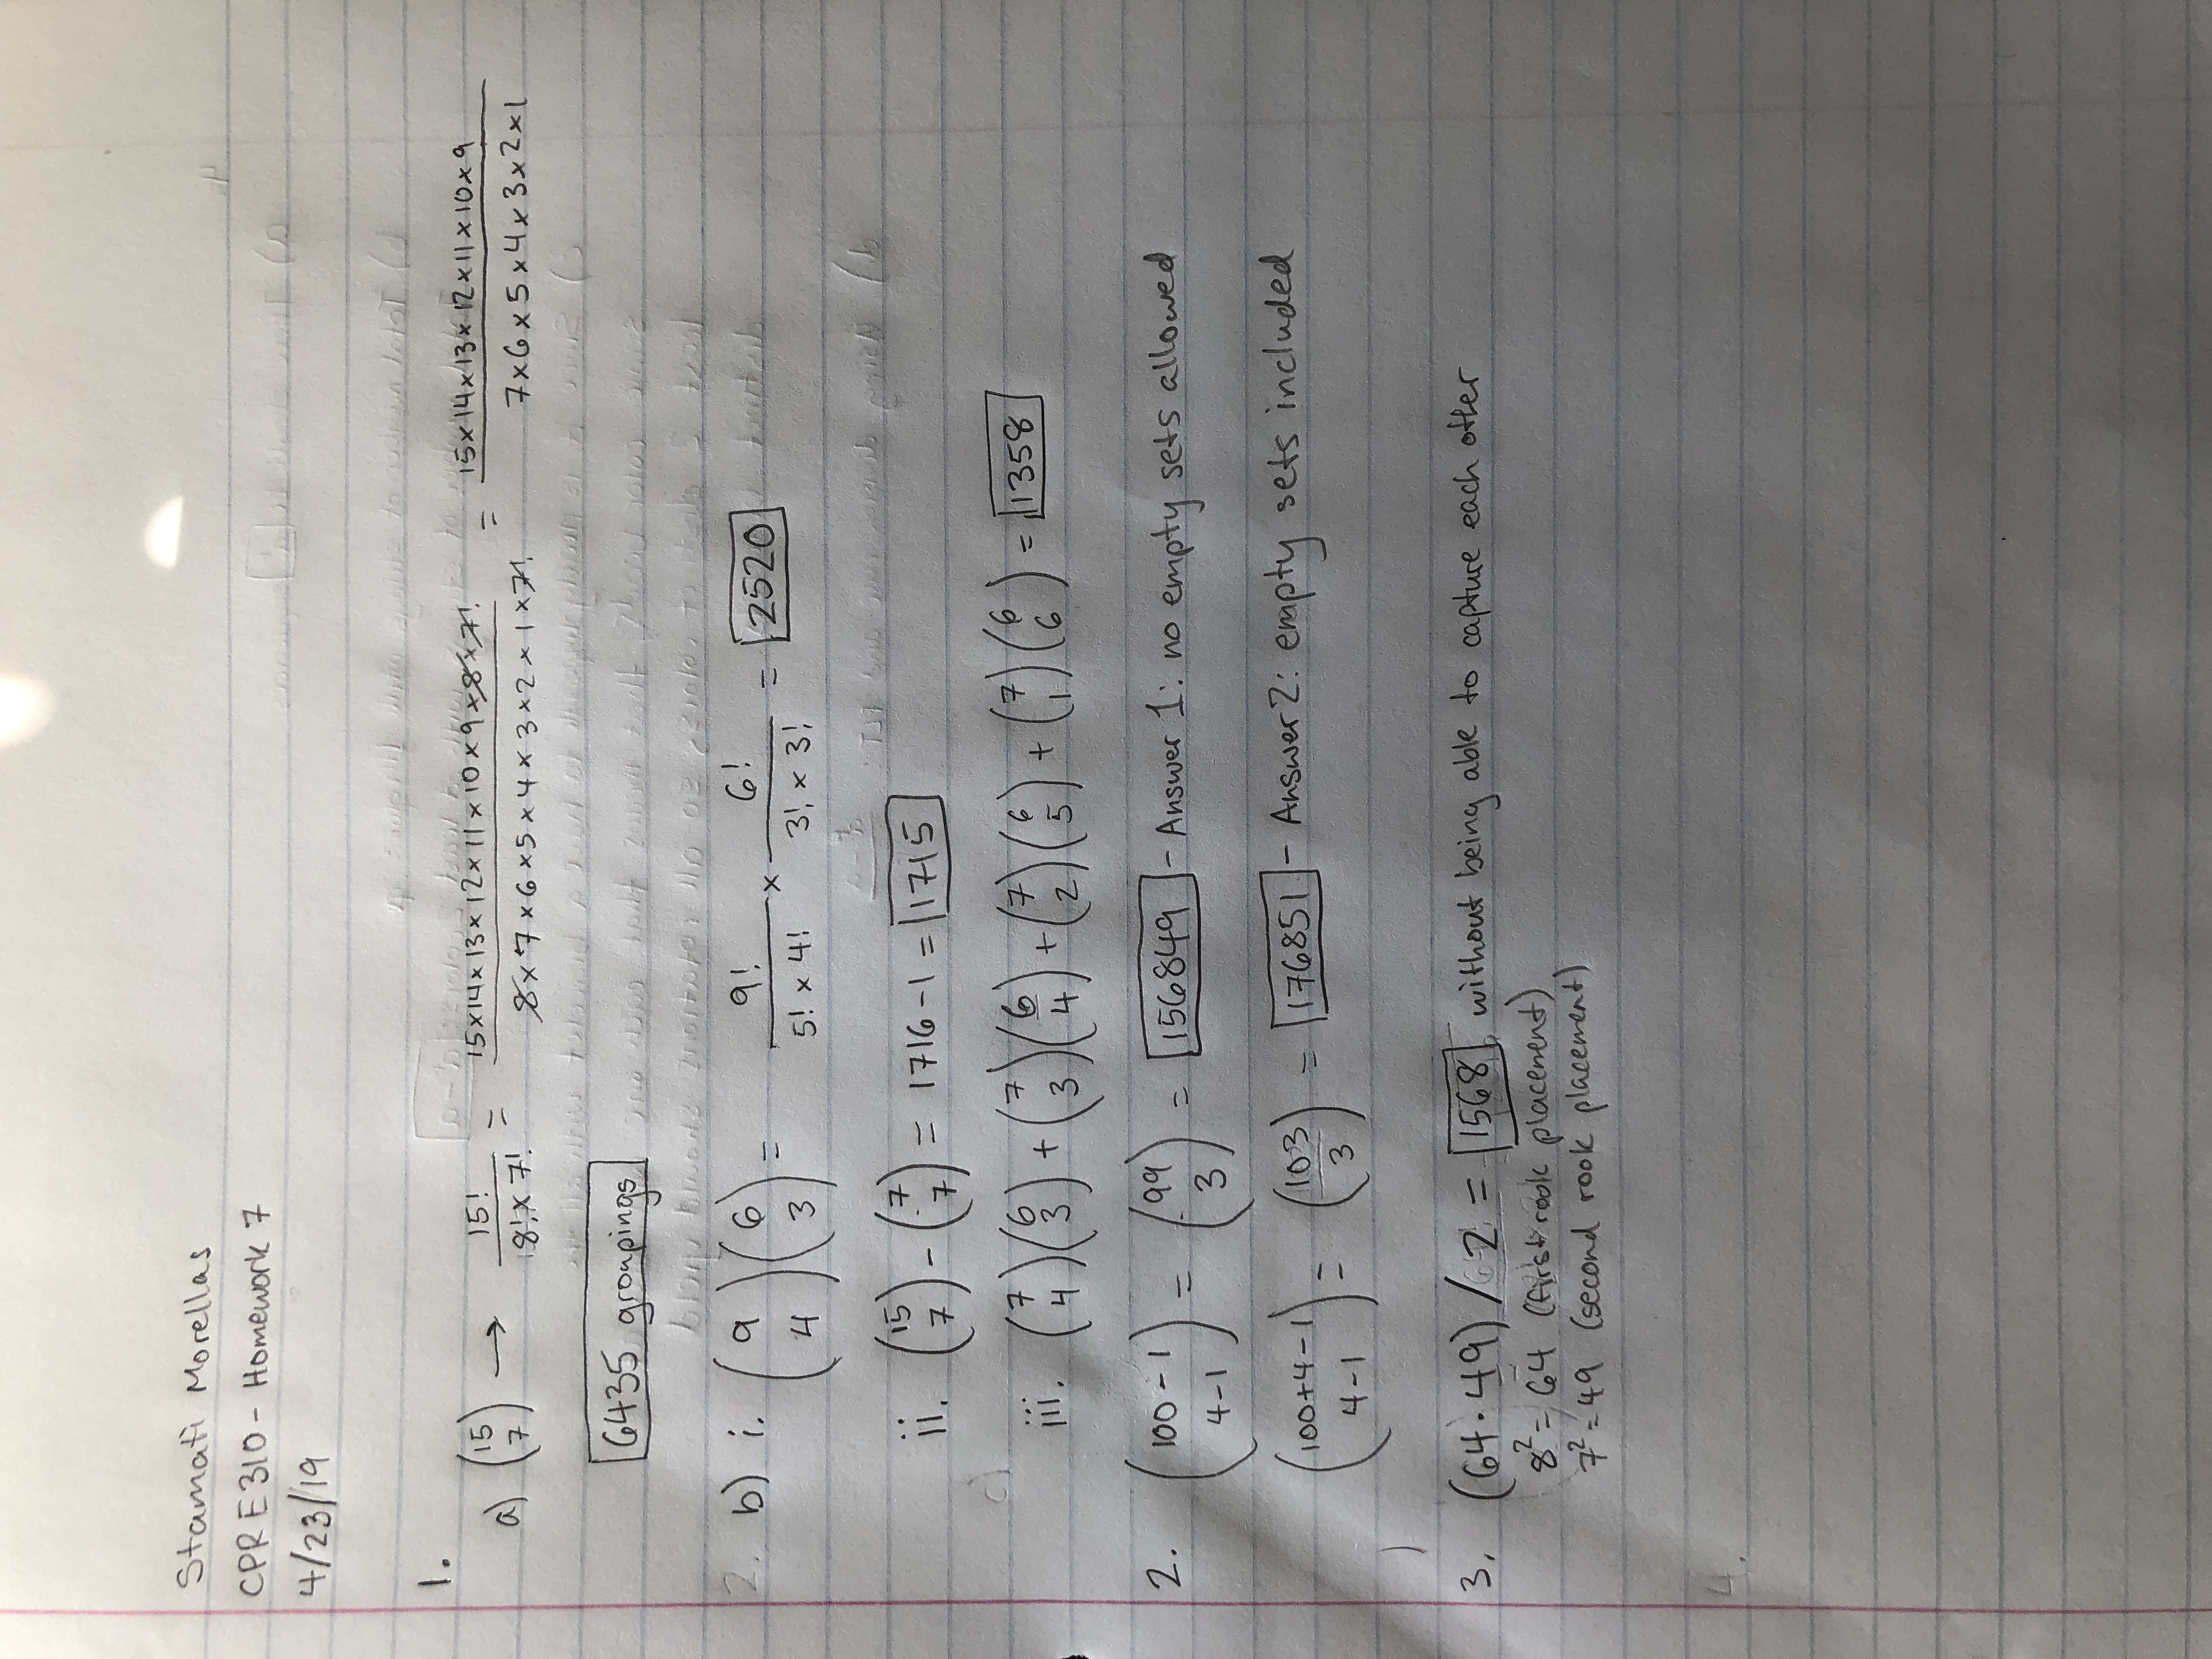 Stamati Morellas
CPR E 310 - Homework 7
4/23/19
1.
a) (15 7) → 15! / 8! x 7! = 15x14x13x12x11x10x9x8x7! / 8x7x6x5x4x3x2x1x7! = 15x14x13x12x11x10x9 / 7x6x5x4x3x2x1
6435 groupings
2. b) i. (9 4)(6 3) = 9! / 5! x 4! x 6! / 3! x 3! = 2520
ii. (15 7) - (7 7) = 1716 - 1 = 1715
c)
iii. (7 4)(6 3) + (7 3)(6 4) + (7 2)(6 5) + (7 1)(6 6) = 1358
2. (100-1 4-1) = (99 3) = 156849 - Answer 1: no empty sets allowed
(100+4-1 4-1) = (103 3) = 176851 - Answer 2: empty sets included
3. (64·49) / 2 = 1568 without being able to capture each other
8² = 64 (first rook placement)
7² = 49 (second rook placement)
4.